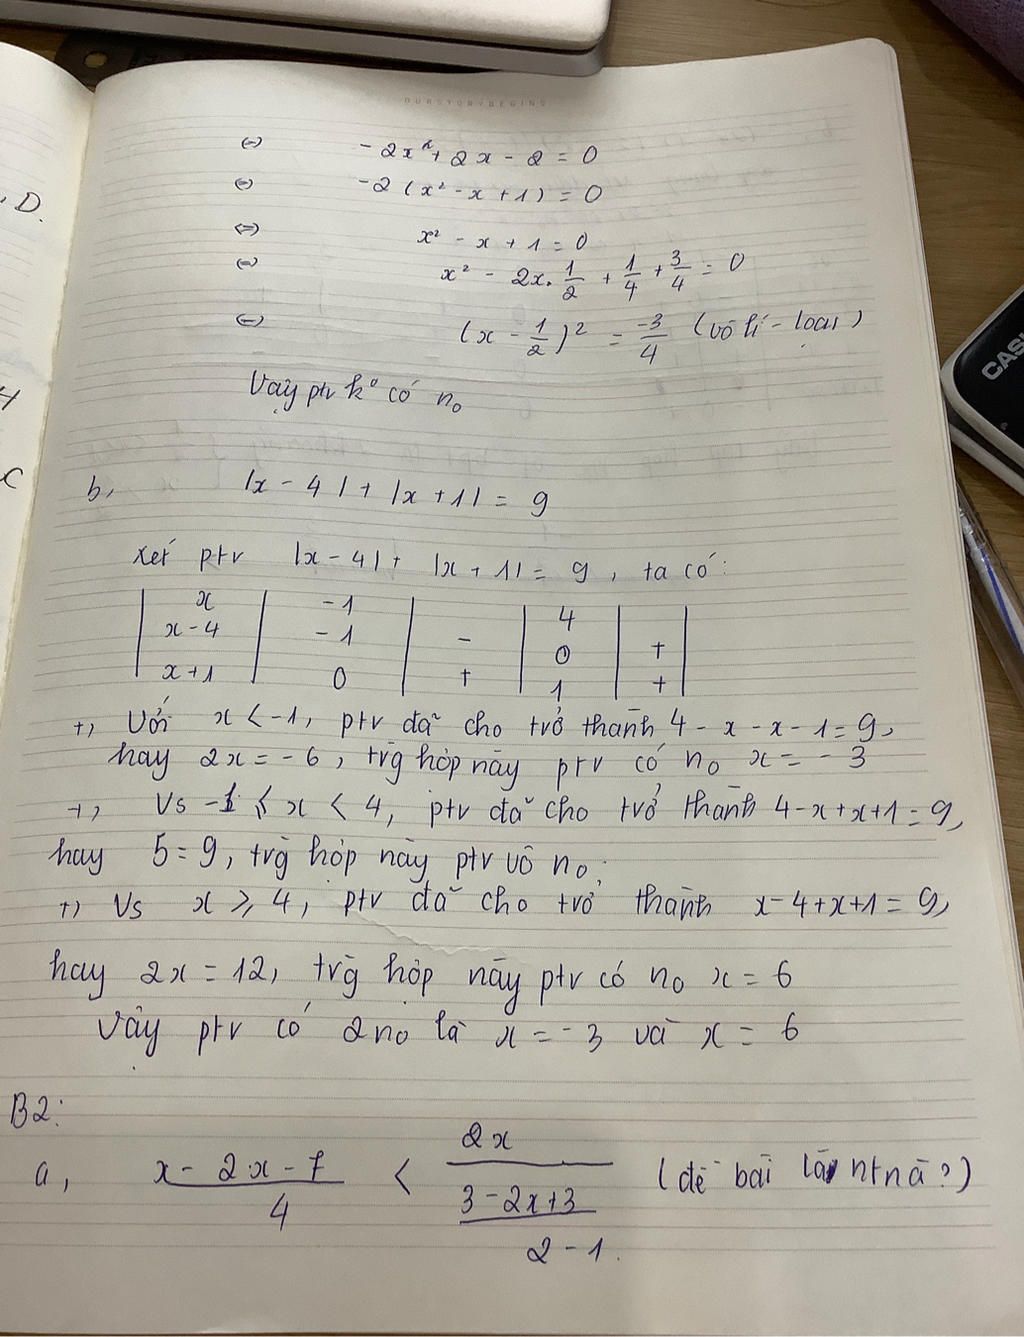 OURSTORYBEGINS
(=) -2x² + 2x - 2 = 0
(=) -2(x² - x + 1) = 0
<=> x² - x + 1 = 0
(=) x² - 2x. 1/2 + 1/4 + 3/4 = 0
(=) (x - 1/2)² = -3/4 (vô lí - loại)
Vậy ptr k° có n₀
, D.
H
C
b, |x - 4| + |x + 1| = 9
Xét ptr |x - 4| + |x + 1| = 9, ta có:
| x | -1 | | 4 | |
| x - 4 | - 1 | - | 0 | + |
| x + 1 | 0 | + | 1 | + |
+, Với x < -1, ptr đã cho trở thành 4 - x - x - 1 = 9,
hay 2x = - 6, trg hợp này ptr có n₀ x = - 3
+, Vs -1 ⩽ x < 4, ptr đã cho trở thành 4 - x + x + 1 = 9,
hay 5 = 9, trg hợp này ptr vô n₀.
+, Vs x ⩾ 4, ptr đã cho trở thành x - 4 + x + 1 = 9,
hay 2x = 12, trg hợp này ptr có n₀ x = 6
Vậy ptr có 2 n₀ là x = - 3 và x = 6
B2:
a, x - 2x - 7 / 4 < 2x / 3 - 2x + 3 / 2 - 1. (đề bài là ntnà?)
CAS